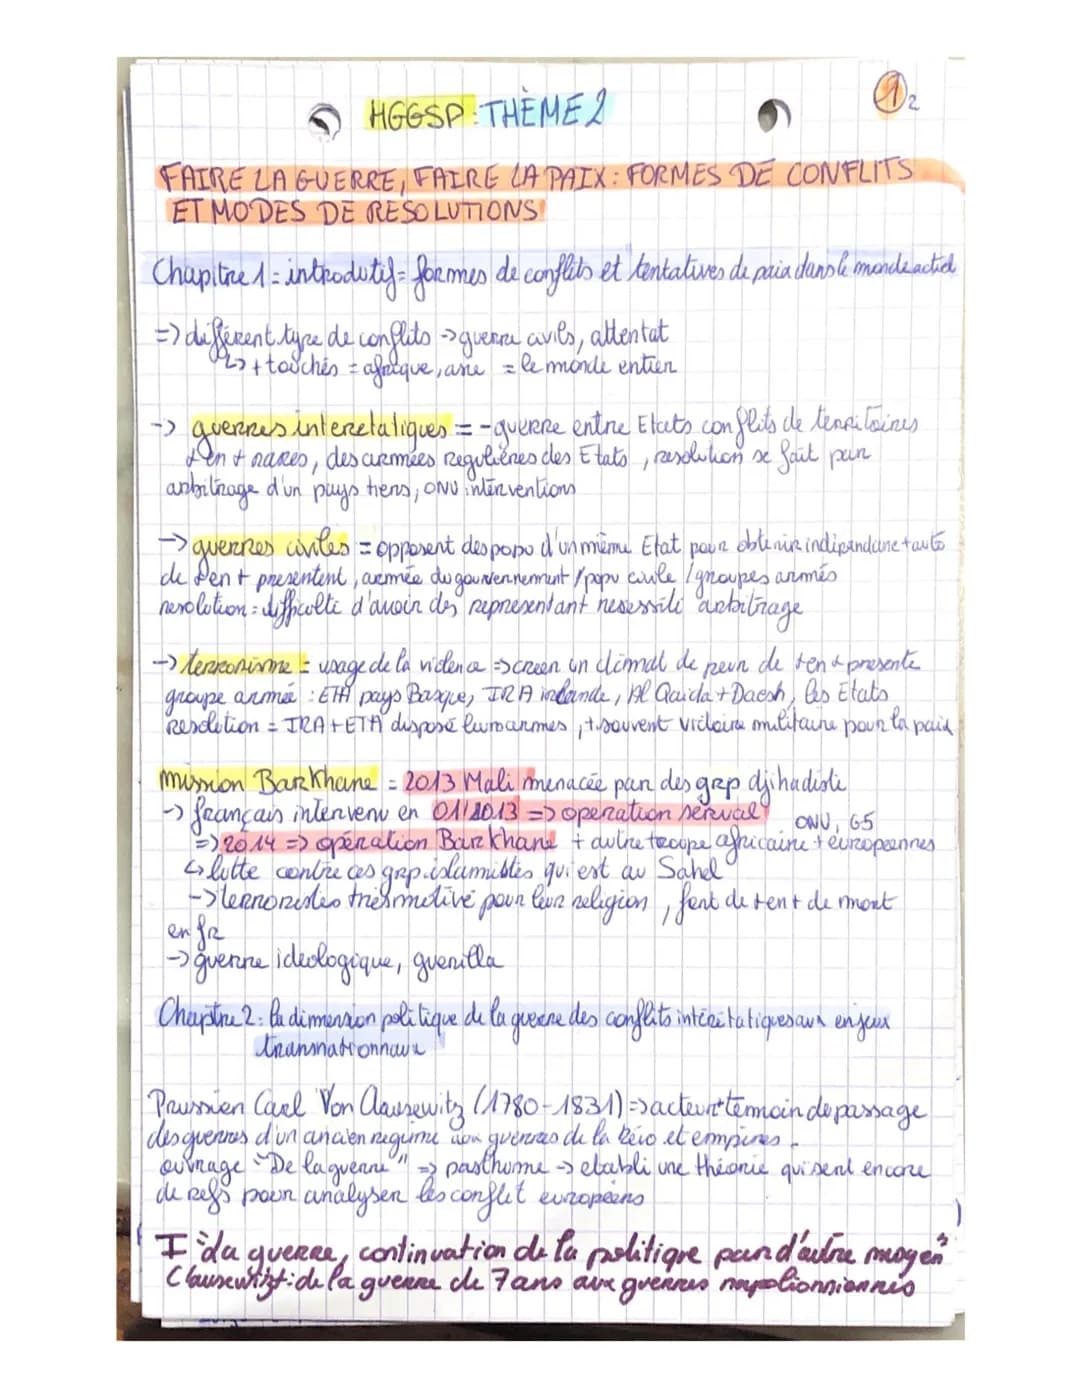 1 2
HGGSP : THÈME 2
FAIRE LA GUERRE, FAIRE LA PAIX : FORMES DE CONFLITS
ET MODES DE RESOLUTIONS
Chapitre 1 = introdutif = formes de conflits et tentatives de paix dans le monde actuel
=> différent type de conflits -> guerre civils, attentat
↳ + touchés = afrique, asie = le monde entier
-> guerres interetatiques = - guerre entre Etats conflits de territoires
de en + rares, des armées regulières des Etats, resolution se fait par
arbitrage d'un pays tiers, ONU interventions
-> guerres civiles = opposent des popu d'un même Etat pour obtenir indépendance + auto
de en + presentent, armée du gouvernement / popu civile / groupes armés
resolution = difficulté d'avoir des representant nesessité arbitrage
-> terrorisme = usage de la violence => créer un climat de peur de + en + presente
groupe armée : ETA pays Basque, IRA irlande, Al Qaida + Daesh, les Etats
Resolution = IRA + ETA disposé leurs armes, + souvent victoire militaire pour la paix
mission Barkhane = 2013 Mali menacée par des grp djihadiste
-> français intervenu en 01/2013 => operation serval
ONU, G5
=> 2014 => opération Barkhane + autre troupe africaine + européennes
↳ lutte contre ces grp islamistes qui est au Sahel
-> terroristes très motivé pour leur religion, font de + en + de mort
en fr
-> guerre ideologique, guerilla
Chapitre 2 : la dimmension politique de la guerre des conflits intéretatiques aux enjeux
transnationnaux
Prussien Carl Von Clausewitz (1780-1831) => acteur + témoin de passage
des guerres d'un ancien regime aux guerres de la Révo et empires.
ouvrage "De la guerre" => posthume -> etabli une théorie qui sert encore
de refs pour analyser les conflit européens
I "La guerre, continuation de la politique par d'autre moyen"
Clausewitz : de la guerre de 7 ans aux guerres napoléonniennes